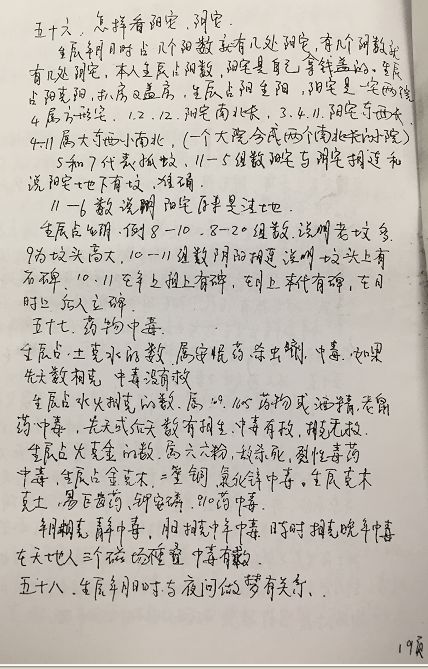 五十六、怎样看阳宅，阴宅
生辰年月日时占几个阳数就有几处阳宅，有几个阴数就
有几处阴宅，本人生辰占阳数，阳宅是自己拿钱盖的。生辰
占阳克阳，扒房又盖房，生辰占阳生阳，阳宅是一宅两院
4属方形宅，1.2.12.阳宅南北长，3.4.11.阳宅东西长
4-11属大东西小南北，（一个大院分成两个南北长的小院）
5和7代表孤坟，11-5组数阳宅与阴宅相连和
说阳宅地下有坟，准确
11-6数说明阳宅原来是洼地
生辰占阴，例8-10.8-20组数，说明老坟多
9为坟头高大，10-11组数阴阳相连说明坟头上有
石碑，10.11在年上祖上有碑，在月上本代有碑，在日
时上后人立碑
五十七、药物中毒
生辰占土克水的数属安眠药，杀虫剂，中毒，如果
先天数相克 中毒没有救
生辰占水火相克的数，属药物或酒精，老鼠
药中毒，先天或后天数有相生，中毒有救，相克无救
生辰占火克金的数，属六六粉，敌杀死，烈性毒药
中毒，生辰占金克木，铜，氯化锌中毒。生辰克木
克土，药，钾安磷，药中毒
年月相克青年中毒，月日相克中年中毒日时相克晚年中毒
在天地人三个磁场重叠中毒有救
五十八、生辰年月日时与夜间做梦有关系、
19页